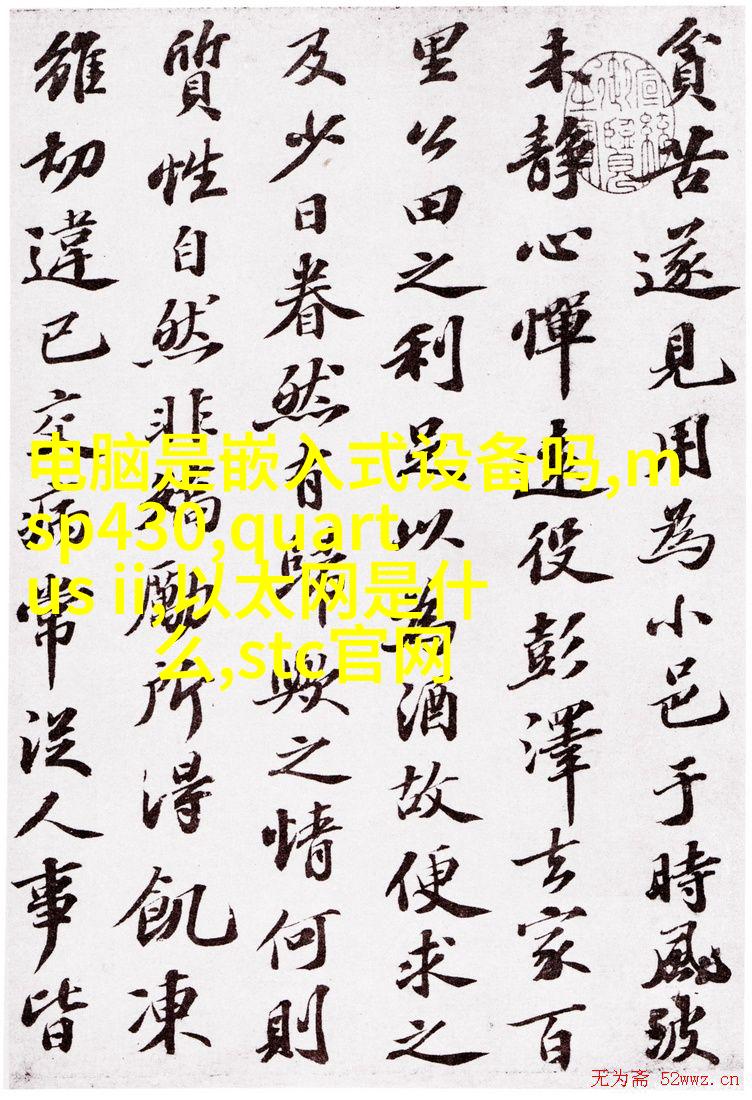 貧苦遂見用為小邑于時風波
未静心憚遠役彭澤去家百
里公田之利足以為酒故便求之
及少日眷然有歸歟之情何則
質性自然非矯勵所得飢凍
雖切違已交病常從人事皆
电脑是嵌入式设备吗,m
sp430,quart
us ii,以太网是什
么,stc官网
无为斋 52wwz.cn